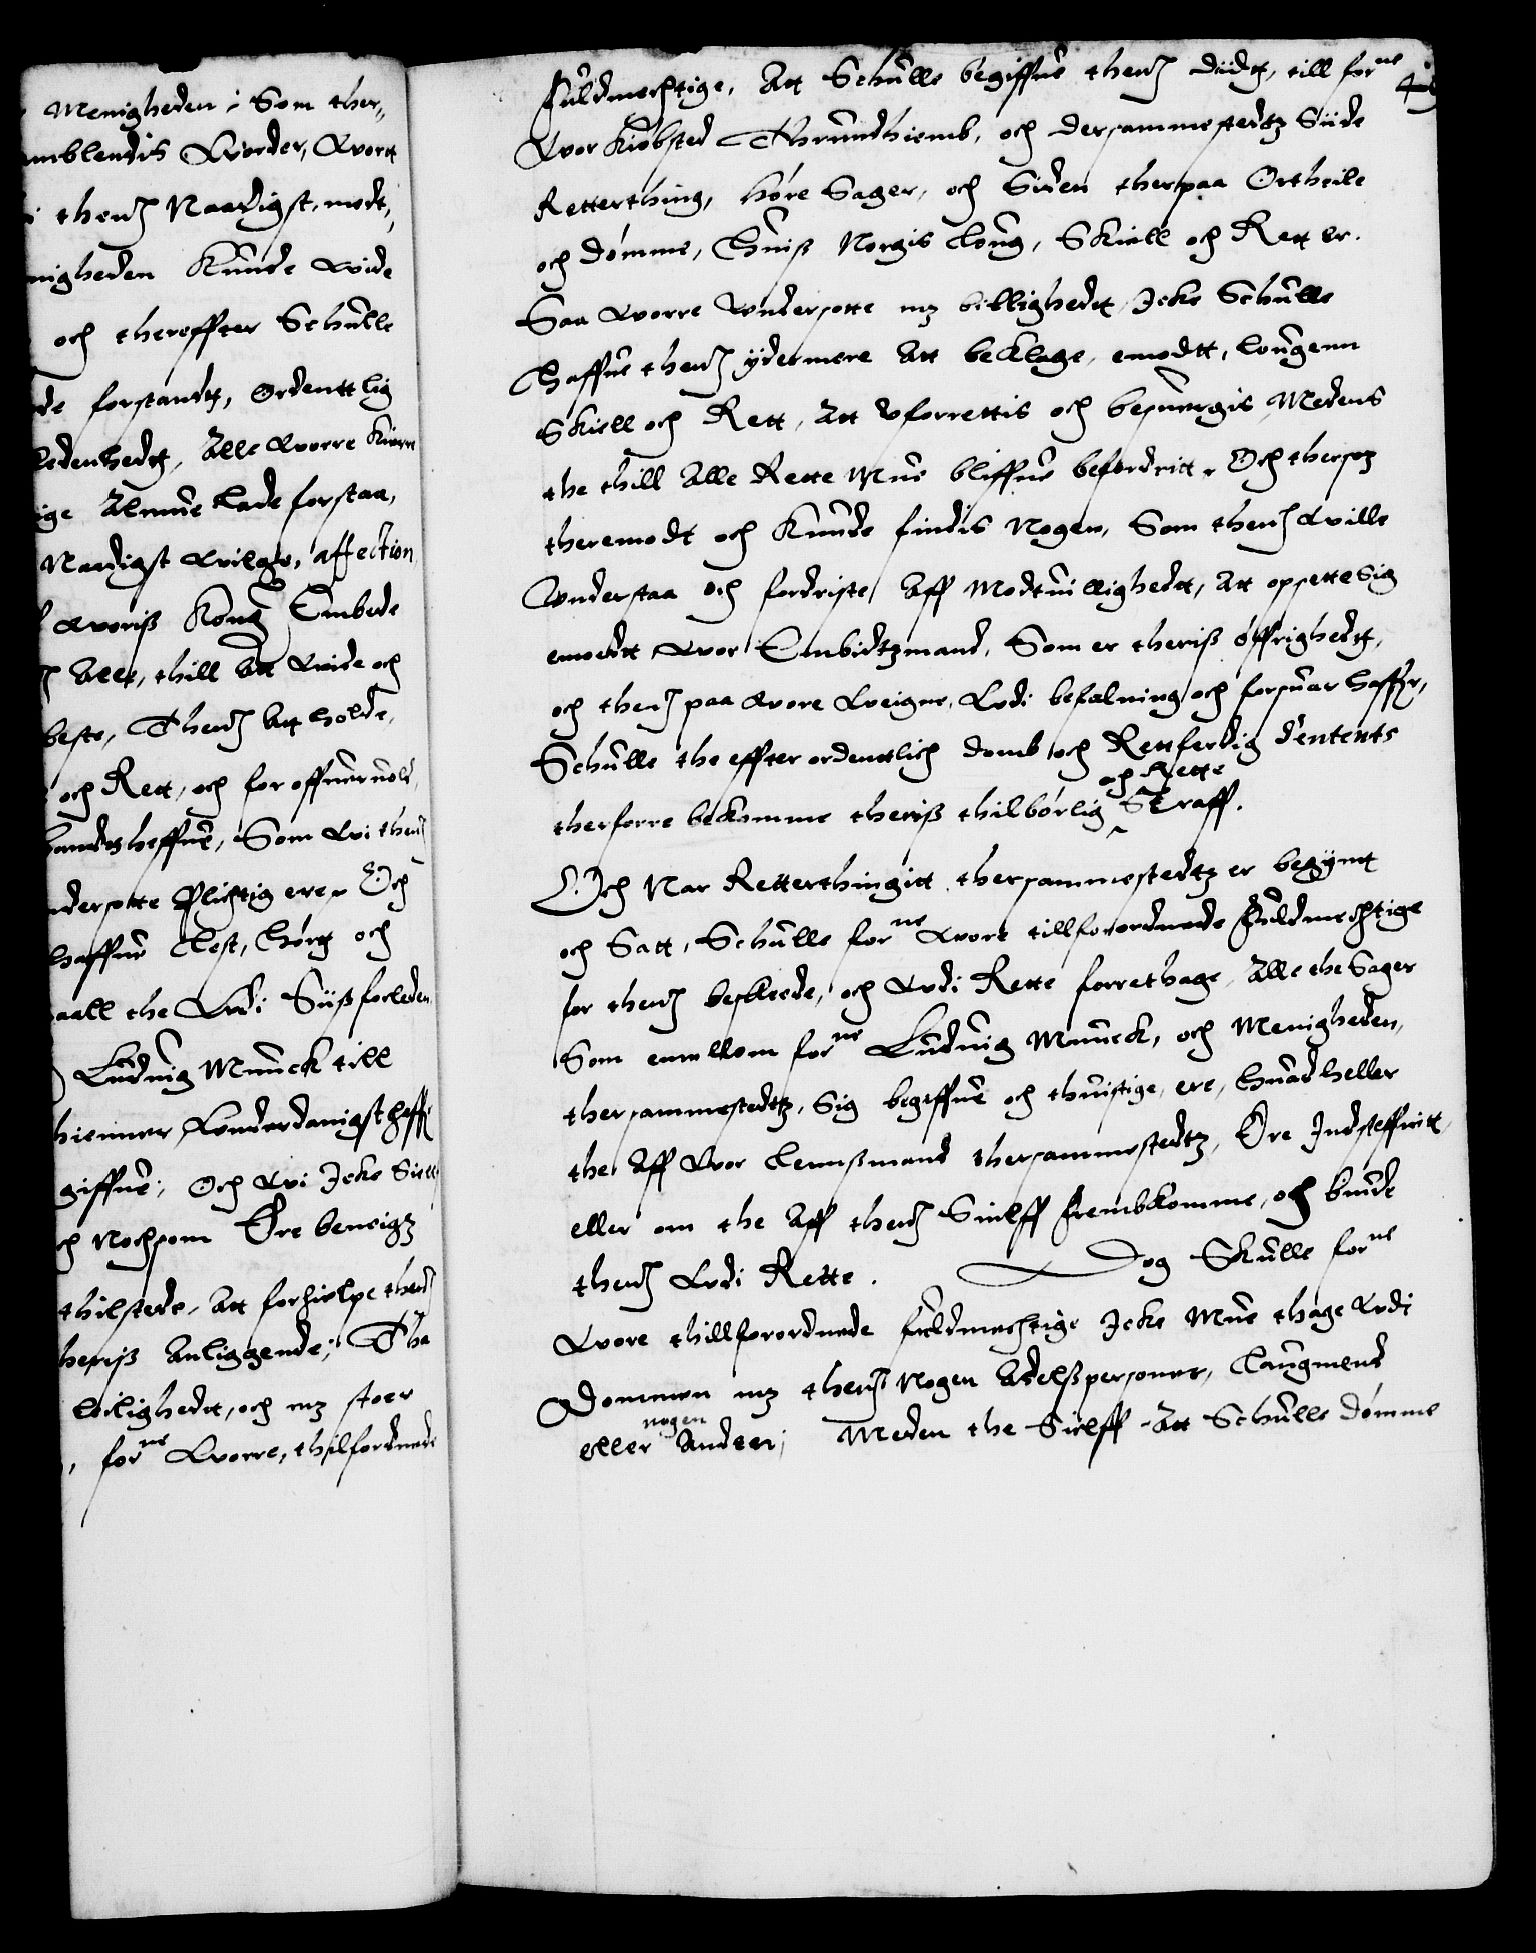 Menigheden i Som ther,,
mblendis Worder, Wort
thenom Naadigst, modt,
nigheden Kunde wide
och thereffter Schulle
de forstandt, Ordenttlig
ledenhedt, Alle Worre Kierre
ige Almue Lade forstaa,
Nardigst Wilge, affection
Woriss Kong Embede
Alle, thill Att Wide och
beste, Thenom Att holde,
och Rett, och for offueruold,
handtheffue, Som Wi thenom
ndersotte Plichtig ere. Och
haffue Lest, Hørt och
aall the Udi Siist forleden
Luduig Munck till
hiemmer, Underdanigst haffr
giffue, Och Wi Icke Siell
ch Nochsom Ere beweigt
thilstede, Att forhielpe thenom
heriss Anliggende; Tha
leilighedt, och mz stoer
, forne Worre, thilfordnede
Fuldmechtige, Att Schulle begiffue thenom diidt, till forne
Wor Kiøbsted Thrundhiemb, och dersammestedtz Siide
Retterthing, høre Sager, och Siden therpaa Ortheile
och dømme, Huiss Norgis Loug, Skiell och Rett er.
Saa Worre Undersotte mz billighedt Icke Schulle
Haffue thenom ydermere Att beklage, emodtt, Lougenn
Skiell och Rett, Att Uforrettis och besuergis Medens
the thill Alle Rette Mue bliffue befordritt. Och thersom
theremodt och Kunde findis Nogen, Som thenom Wille
Understaa och fordriste Aff Modtuillighedt, Att opsette sig
emodt Wor Embidtzmand, Som er theriss øffrighedt,
och thenom paa Wore Weigne, Udi befalning och forsuar haffr,
Schulle the effter ordenttlich domb och Rettferdig Sententz
och Rette
therforre bekomme theriss thilbørlig Straff.
Och Nar Retterthingitt thersammestedtz er begynt
och Satt, Schulle forne Wore tillforordnede Fuldmechtige
for thenom beskeede, och Udi Rette forrethage, Alle the Sager
Som emellom forne Luduig Munck, och Menigheden,
thersammestedtz, Sig begiffue och thuistige, ere, huad heller
the Aff Wor Lennssmand thersammestedtz, Ere Indsteffnitt,
eller om the Aff thenom Sielff frembkomme, och biude
thenom Udi Rette. Dog Skulle forne
Wore thillforordnede fuldmechtige Icke Mue thage Udi
Dommen mz thenom Nogen Adelsspersoner, Laugmend
nogen
eller Andeen; Meden the Sielff Att Schulle dømme